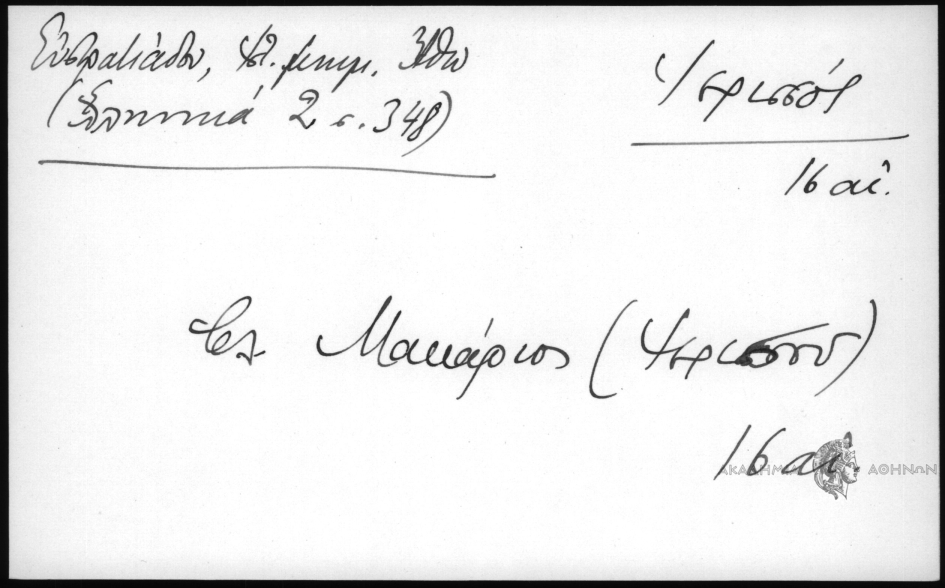 Εὐστρατιάδου, Ἱστ. μνημ. Ἄθω
(Ἑλληνικά 2 σ. 348)
Ἱερισσός
16 αἰ.
Μακάριος (Ἱερισσοῦ)
16 αἰ.
ΑΚΑΔΗΜΙΑ ΑΘΗΝΩΝ